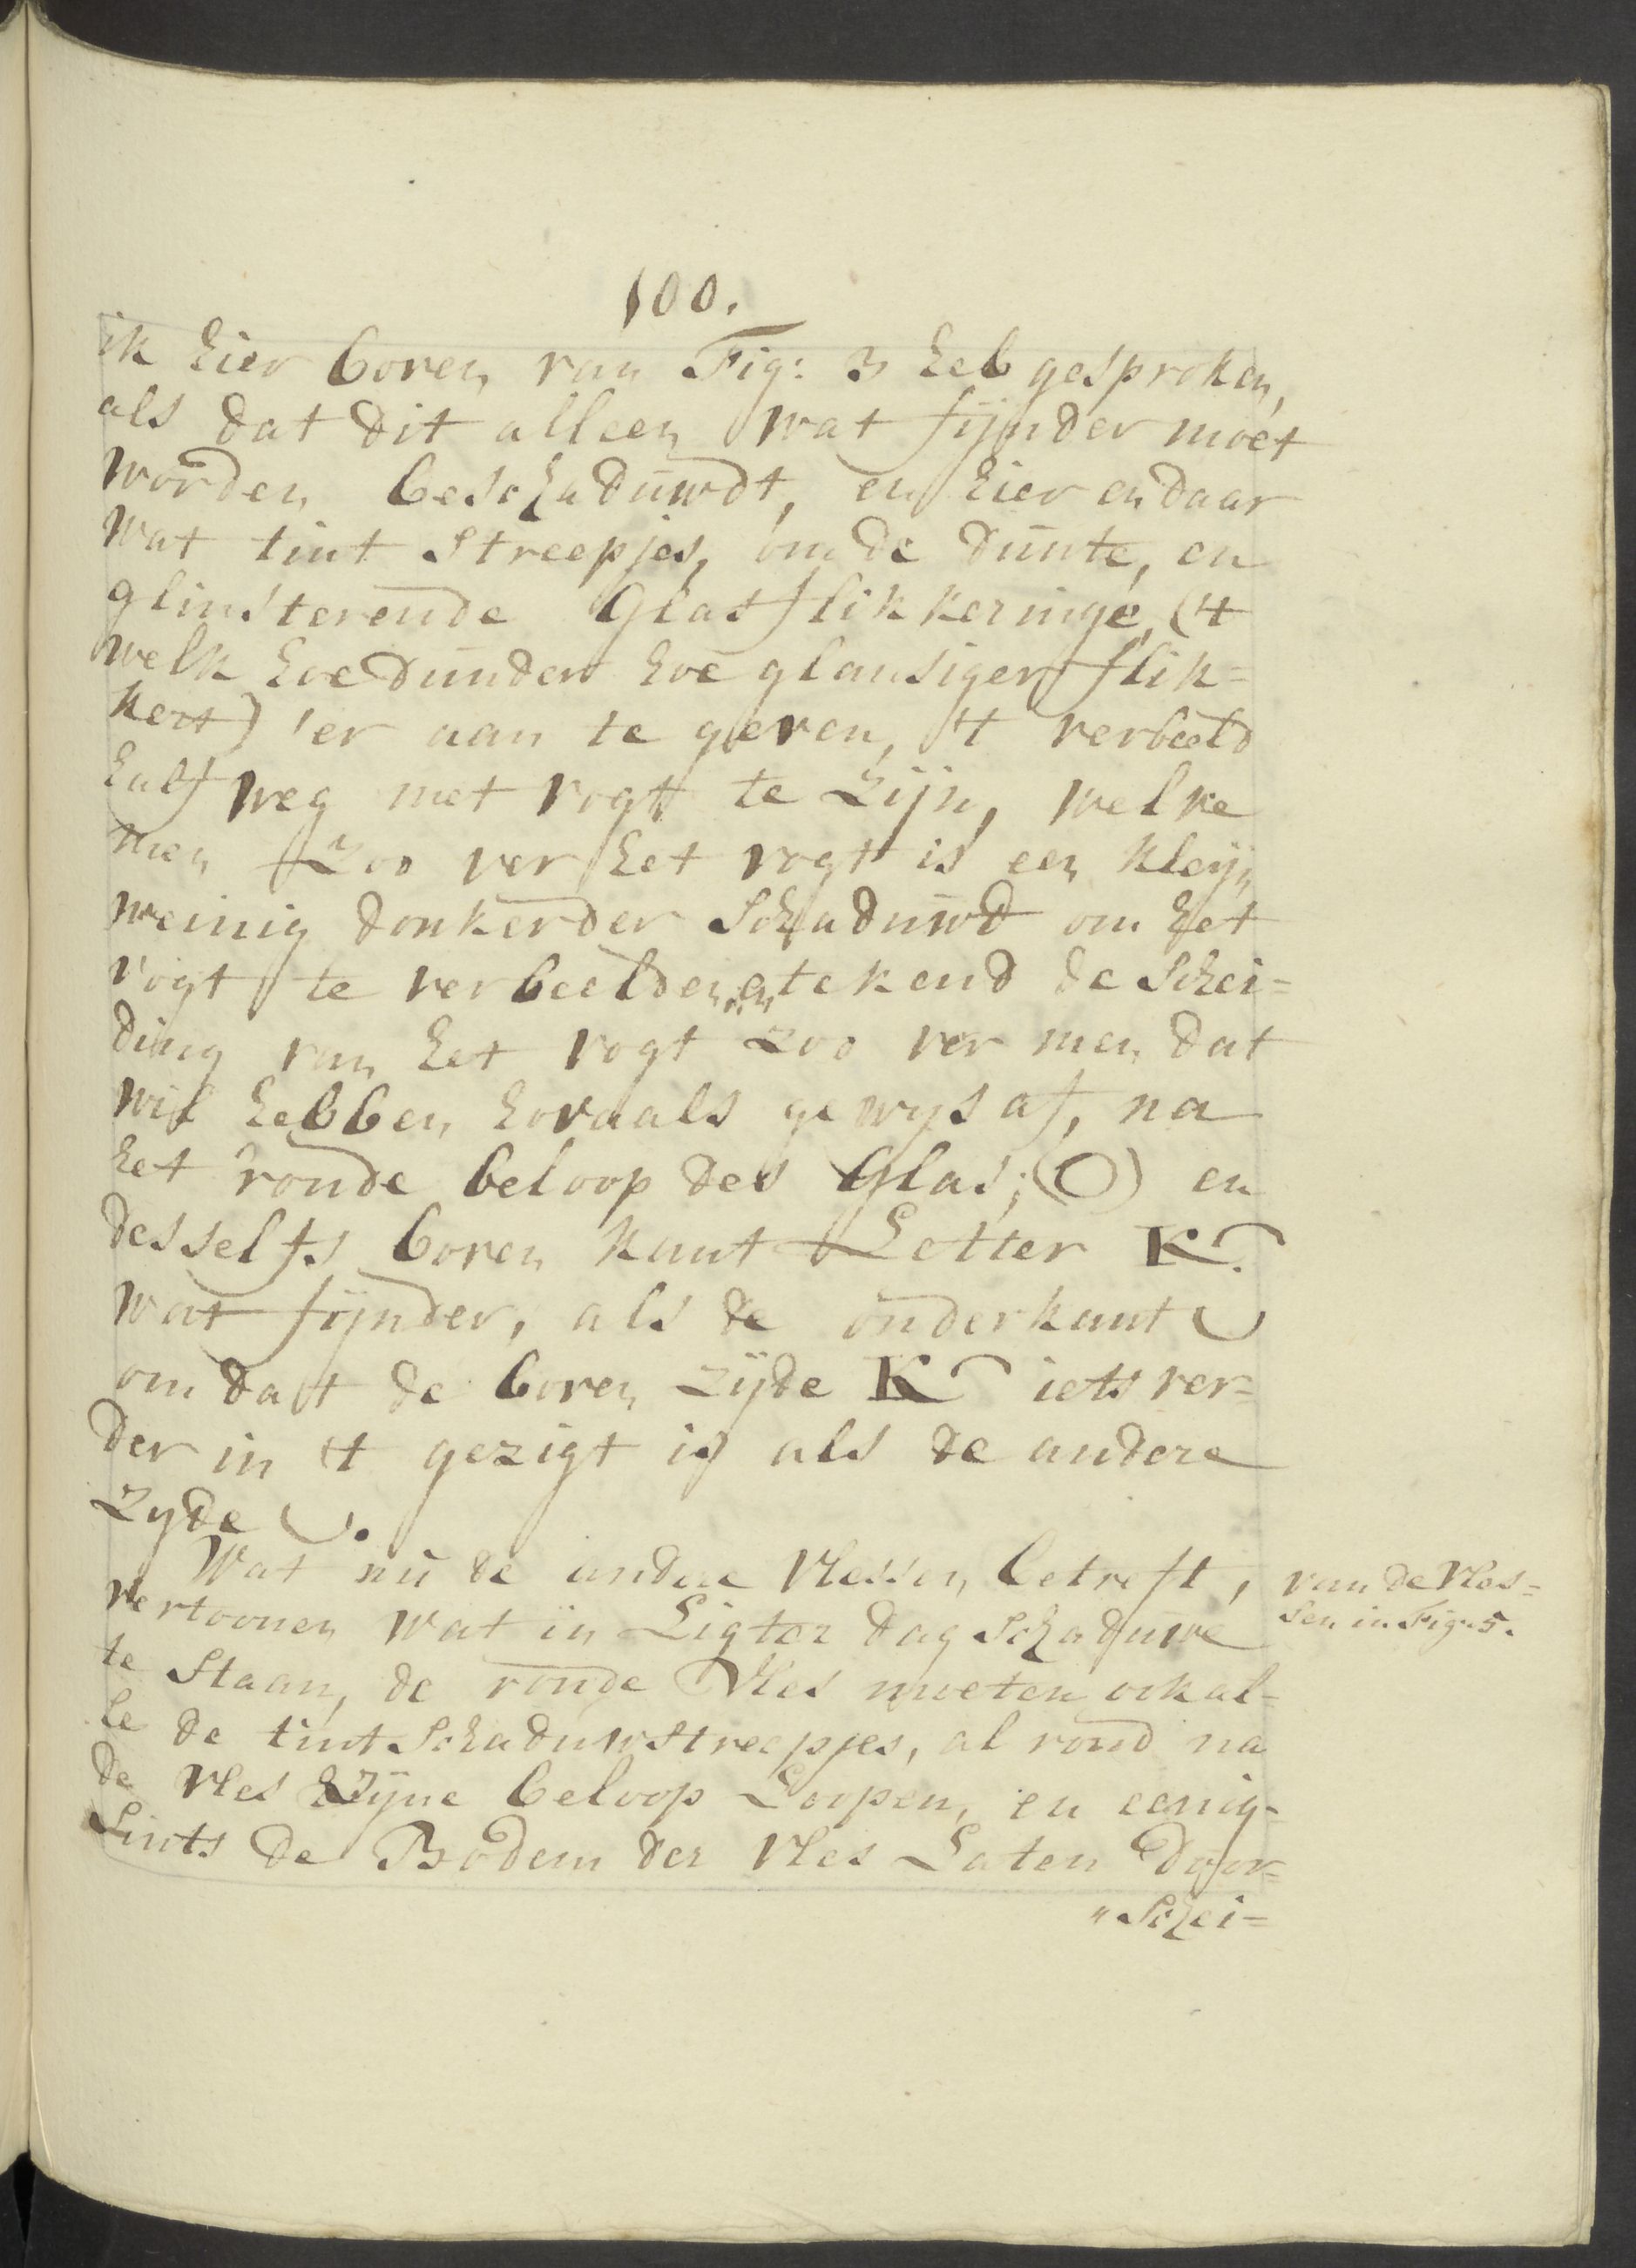 100.
ik hier boven van Fig: 3 heb gesproken,
als dat dit alleen wat fijnder moet
worden beschaduwdt, en hier en daar
wat tint streepjes, om de dunte, en
glinsterende Glasflikkeringe, ('t
welk hoe dunder hoe glansiger flik=
kert) 'er aan te geven, 't verbeeld
half weg met vogt te zijn, welke
men zoo ver het vogt is een kleijn
weinig donkerder schaduwd om het
vogt te verbeelden, en tekend de schei=
ding van het vogt zoo ver men dat
wil hebben hovaals gewys af, na
het ronde beloop des Glas; (O) en
desselfs boven kant Letter K⌒.
wat fijnder, als de onderkant ◡
om dat de boven zijde K ⌒ iets ver=
der in 't gezigt is als de andere
zyde ◡.
Wat nu de andere Vlessen betreft,
vertoonen wat in Ligter dag schaduwe
te staan, de ronde Vles moeten ook al=
le de tint schaduwstreepjes, al rond na
de Vles zijne beloop Loopen, en eenig=
sints de Bodem der Vles Laten door=
"schei=
van de Vles=
sen in Fig. 5.